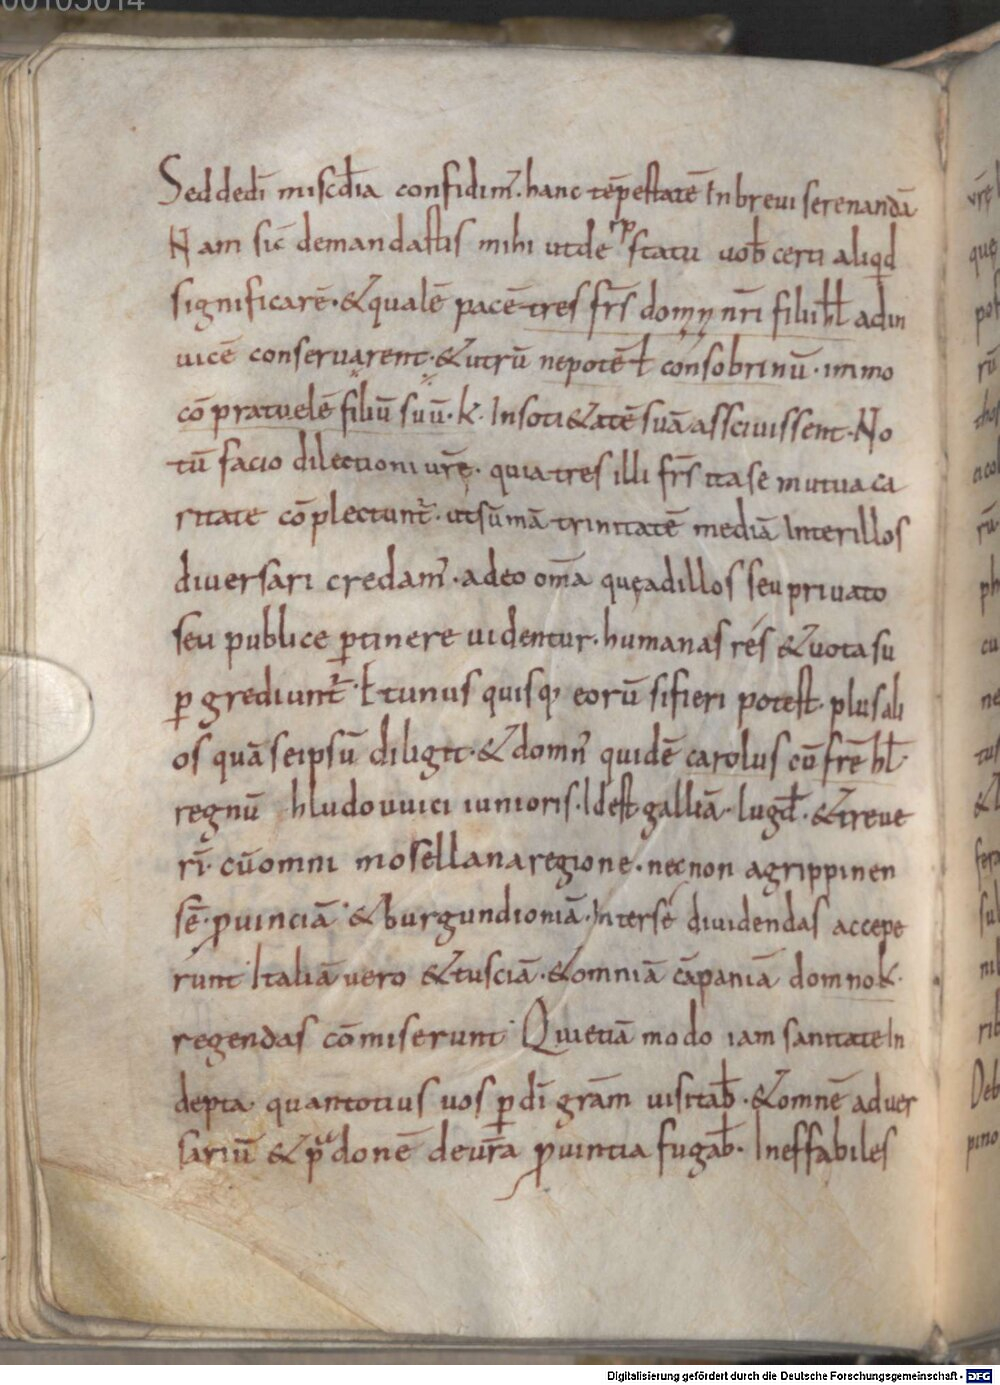 00103014
Sed dedi̅ misc̅dia confidim᷒. hanc te̅pestate̅ In breui serenanda̅
N am sic̅ demandastis mihi ut de statu uob̅ certi aliqd
significare̅. & quale̅ pace̅ tres fr̅s domn n̅ri filii hł adin
uice̅ conseruarent. & utru̅ nepote̅ ł consobrinu̅. immo
co̅ pratuele̅ filiu̅ suu̅. k. In soti&ate̅ sua̅ asscivissent. No
tu̅ facio dilectioni ur̅ę. quia tres illi fr̅s ita se mutua ca
ritate co̅plectunt᷒. ut su̅ma̅ trinitate̅ media̅ Inter illos
diuersari credam᷒. adeo om̅a quę ad illos seu priuato
seu publice ꝑtinere uidentur. humanas res & uota su
ꝑ grediunt᷒. ł t unus quisq; eoru̅ si fieri potest. plus ali
os qua̅ se ipsu̅ diligit. & domn᷒ quide̅ carolus cu̅ fr̅e hł.
regnu̅ hludouuici iunioris. Id est gallia̅. lugd̅. & treue
ri̅. cu̅ omni mosellana regione. nec non agrippinen
se̅. ꝓuincia̅. & burgundionia̅. Inter se diuidendas accepe
runt Italia̅ uero & tuscia̅. & omnia̅ ca̅pania̅ domno k.
regendas co̅miserunt. Quietia̅ modo iam sanitate In
depta. quantotius uos ꝑ di̅ gra̅m uisitab̅. & omne̅ aduer
sariu̅ & p̅done̅ de ur̅a ꝓuintia fugab̅. Ineffabiles
vr̅ę
quę
ru̅
ph
cu
ne
tus
ni
Deb
pino
Digitalisierung gefördert durch die Deutsche Forschungsgemeinschaft - DFG